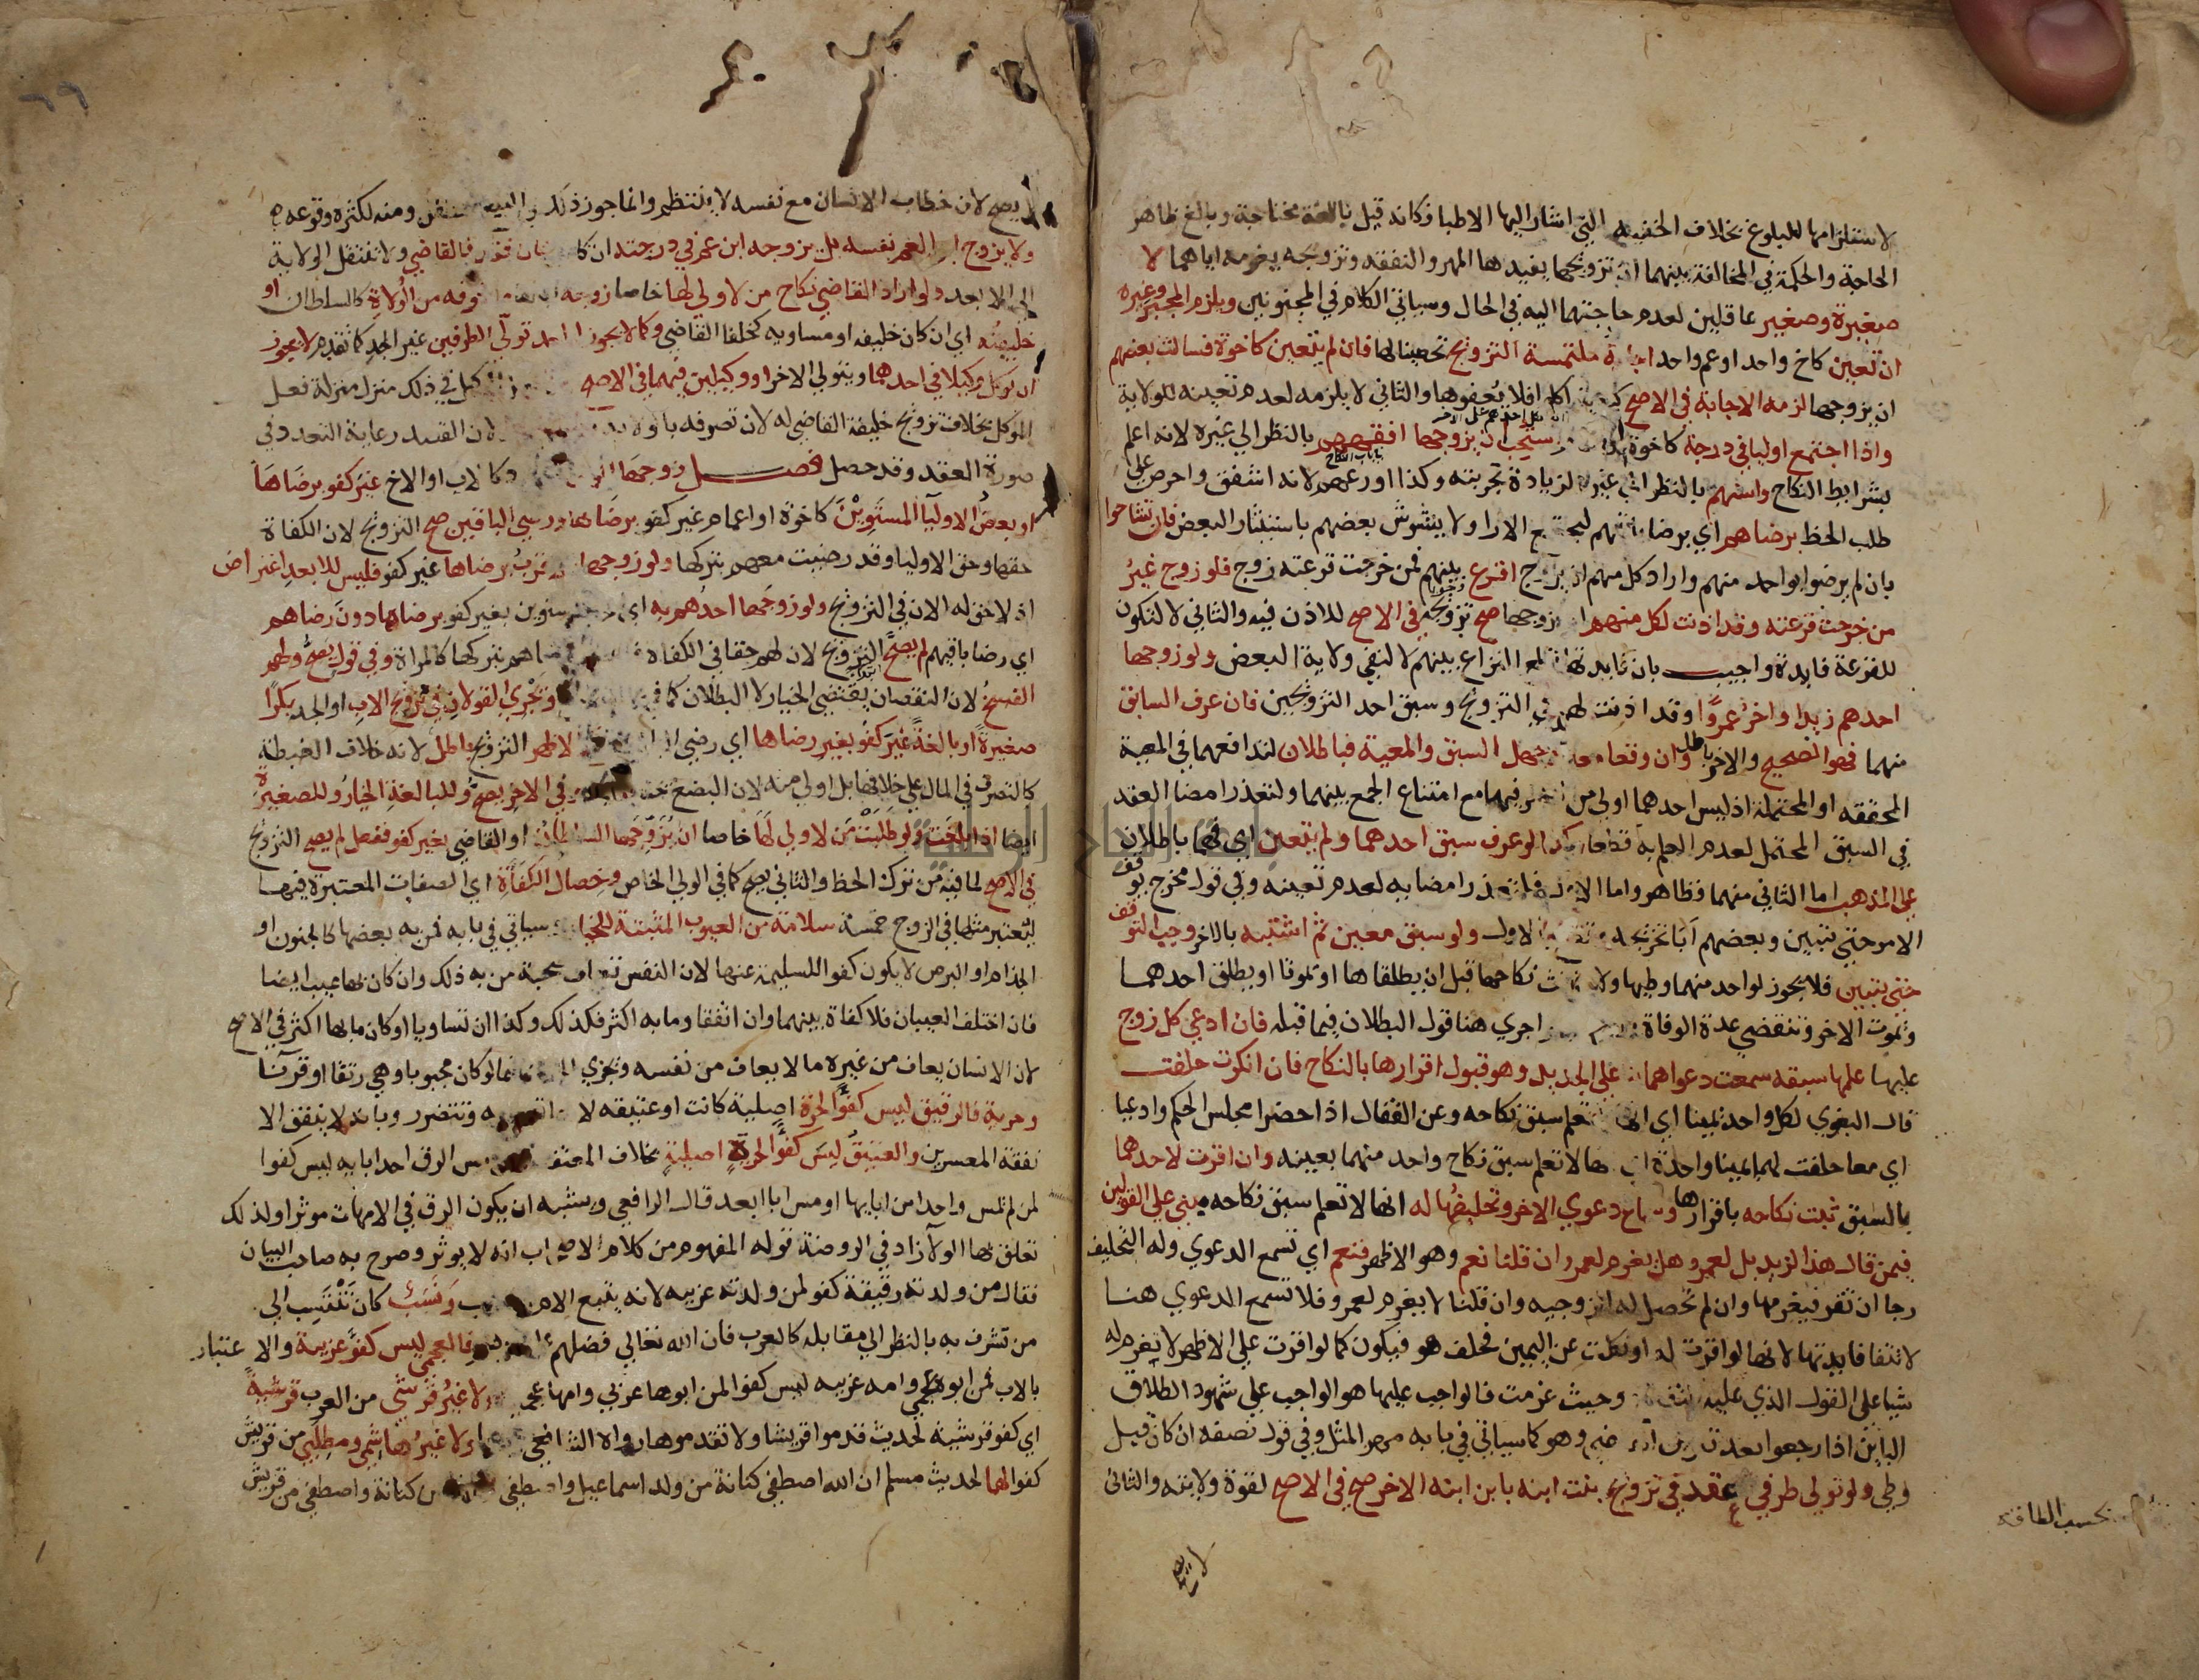 لاستلزامها للبلوغ بخلاف الخفيه التي اشار اليها الاطبا فكانه قيل بالغة محتاجة وبالغ ظاهر
الحاجة والحكمة في المخالفة بينهما ان تزويجها يفيدها المهر والنفقه وتزويجه يغرمه اياهما لا
صغيرة وصغير عاقلين لعدم حاجتهما اليه في الحال وسياتي الكلام في المجنونين ويلزم المجبر وغيره
ان تعين كاخ واحد او عم واحد اجابة ملتمسة التزويج تحصينا لها فان لم يتعين كاخوة فسالت بعضهم
ان يزوجها لزمه الاجابة في الاصح كيلا يتواكلوا فلا يعفوها والثاني لا يلزمه لعدم تعينه للولاية
واذا اجتمع اوليا في درجة كاخوة استحب ان يزوجها افقههم بالنظر الي غيره لانه اعلم
بباب النكاح
بشرايط النكاح واسنهم بالنظر الي غيره لزيادة تجربته وكذا اورعهم لانه اشفق واحرص علي
طلب الحظ برضاهم اي برضا باقيهم ليجتمع الارا ولا يتشوش بعضهم باستيثار البعض فان تشاحوا
بان لم يرضوا بواحد منهم واراد كل منهم ان يزوج اقرع بينهم فمن خرجت قرعته زوج فلو زوج غير
من خرجت قرعته وقد اذنت لكل منهم ان يزوجها صح تزويجه في الاصح للاذن فيه والثاني لا لتكون
للقرعة فايدة واجيب بان فايدتها قطع النزاع بينهم لا لنفي ولاية البعض ولو زوجها
احدهم زيدا واخر عمرًا وقد اذنت لهم في التزويج وسبق احد التزويجين فان عرف السابق
منهما فهو الصحيح والاخر باطل وان وقعا معا او جهل السبق والمعية فباطلان لتدافعهما في المعية
المحققه او المحتملة اذ ليس احدهما اولي من الاخر فيهما مع امتناع الجمع بينهما ولتعذر امضا العقد
في السبق المحتمل لعدم العلم به قطعا وكذا لو عرف سبق احدهما ولم يتعين اي فهما باطلان
علي المذهب اما الثاني منهما فظاهر واما الاول فلتعذر امضايه لعدم تعينه وفي قول مخرج توقف
الامر حتي يتبين وبعضهم ابا تخريجه وقطع بالاول ولو سبق معين ثم اشتبه بالاخر وجب التوقف
حتي يتبين فلا يجوز لواحد منهما وطيها ولا ثالث نكاحها قبل ان يطلقاها او يموتا او يطلق احدهما
ويموت الاخر وتنقضي عدة الوفاة اجري هنا قول البطلان فيما قبله فان ادعي كل زوج
عليها علمها سبقه سمعت دعواهما علي الجديد وهو قبول اقرارها بالنكاح فان انكرت حلفت
قال البغوي لكل واحد يمينا اي انها لا تعلم سبق نكاحه وعن القفال اذا حضرا مجلس الحكم وادعيا
اي معا حلفت لهما يمينا واحدة انها لا تعلم سبق نكاح واحد منهما بعينه وان اقرت لاحدهما
بالسبق ثبت نكاحه باقرارها وسماع دعوي الاخر وتحليفها له انها لا تعلم سبق نكاحه يبني علي القولين
فيمن قال هذا لزيد بل لعمرو هل يغرم لعمرو ان قلنا نعم وهو الاظهر فنعم اي تسمع الدعوي وله التحليف
رجا ان تقر فيغرمها وان لم تحصل له الزوجيه وان قلنا لا يغرم لعمرو فلا تسمع الدعوي هنا
لانتفا فايدتها لانها لو اقرت له او نكلت عن اليمين فحلف هو فيكون كما لو اقرت علي الاظهر لا يغرم له
شيا علي القول الذي عليه التفريع وحيث غرمت فالواجب عليها هو الواجب علي شهود الطلاق
الباين اذا رجعوا بعد وهو كما سياتي في بابه مهر المثل وفي قول نصفه ان كان قبل
وطي ولو تولي طرفي عقد في تزويج بنت ابنه بابن ابنه الاخر صح في الاصح لقوة ولايته والثاني
بحسب الطاقة
لا يصح
لا يصح لان خطاب الانسان مع نفسه لا ينتظم وانما جوز ذلك ومنه لكثرة وقوعه
ولا يزوج ابن العم نفسه بل يزوجه ابن عم في درجته ان كان فان فقد فالقاضي ولا تنتقل الولاية
الي الابعد ولو اراد القاضي نكاح من لا ولي لها خاصا زوجه من فوقه من الولاة كالسلطان او
خليفته اي ان كان خليفه او مساويه كخلفا القاضي وكما لا يجوز لواحد تولي الطرفين غير الجد كما تقدم لا يجوز
ان يوكل وكيلا في احدهما ويتولي الاخر او وكيلين فيهما في الاصح في ذلك منزل منزلة فعل
الموكل بخلاف تزويج خليفة القاضي له لان تصرفه بالولاية لان القصد رعاية التعدد في
صورة العقد وقد حصل فصل زوجها كالاب او الاخ غير كفو برضاها
او بعض الاوليا المستوين كاخوة او اعمام غير كفو برضاها ورضي الباقين صح التزويج لان الكفاة
حقها وحق الاوليا وقد رضيت معهم بتركها ولو زوجها الاقرب برضاها غير كفو فليس للابعد اعتراض
اذ لا حق له الان في التزويج ولو زوجها احدهم به اي المستوين بغير كفو برضاها دون رضاهم
اي رضا باقيهم لم يصح التزويج لان لهم حقا في الكفاة رضاهم بتركها كالمراة وفي قول يصح ولهم
الفسخ لان النقصان يقتضي الخيار لا البطلان كما في ويجري القولان في تزويج الاب او الجد بكرًا
صغيرة او بالغة غير كفو بغير رضاها اي رضي البالغة الاظهر التزويج باطل لانه خلاف الغبطة
كالتصرف في المال علي خلافها بل اولي منه لان البضع وفي الاخر يصح وللبالغة الخيار وللصغيرة
ايضا اذا بلغت ولو طلبت من لا ولي لها خاصا ان يزوجها السلطان او القاضي بغير كفو ففعل لم يصح التزويج
في الاصح لما فيه من ترك الحظ والثاني يصح كما في الولي الخاص وخصال الكفاة اي الصفات المعتبرة فيها
ليعتبر مثلها في الزوج خمسة سلامة من العيوب المثبتة للخيار وسياتي في بابه فمن به بعضها كالجنون او
الجذام او البرص لا يكون كفوا للسليمة عنها لان النفس تعاف صحبة من به ذلك وان كان بها عيب ايضا
فان اختلف العيبان فلا كفاة بينهما وان اتفقا وما به اكثر فكذلك وكذا ان تساويا او كان ما بها اكثر في الاصح
لان الانسان يعاف من غيره ما لا يعاف من نفسه ويجري فيما لو كان مجبوبا وهي رتقا او قرنا
وحرية فالرقيق ليس كفوًا لحرة اصلية كانت او عتيقه لانها وتتضرر وبانه لا ينفق الا
نفقة المعسرين والعتيق ليس كفوًا لحرة اصلية بخلاف المعتقة مس الرق احد ابايه ليس كفوا
لمن لم يمس واحدا من ابايها او مس ابا ابعد قال الرافعي ويشبه ان يكون الرق في الامهات موثرا ولذلك
تعلق بها الولا زاد في الروضة قوله المفهوم من كلام الاصحاب انه لا يوثر وصرح به صاحب البيان
فقال من ولدته رقيقة كفو لمن ولدته عربيه لانه يتبع الاب ونسب كان تنتسب الي
من تشرف به بالنظر الي مقابله كالعرب فان الله تعالي فضلهم علي غيرهم فالعجمي ليس كفو عربية والاعتبار
بالاب فمن ابوه عجمي وامه عربيه ليس كفوا لمن ابوها عربي وامها عجميه ولا غير قرشي من العرب قرشية
اي كفو قرشية لحديث قدموا قريشا ولا تقدموها رواه الشافعي ولا غير هاشمي ومطلبي من قريش
كفوا لهما لحديث مسلم ان الله اصطفي كنانة من ولد اسماعيل واصطفي قريشا من كنانة واصطفي من قريش